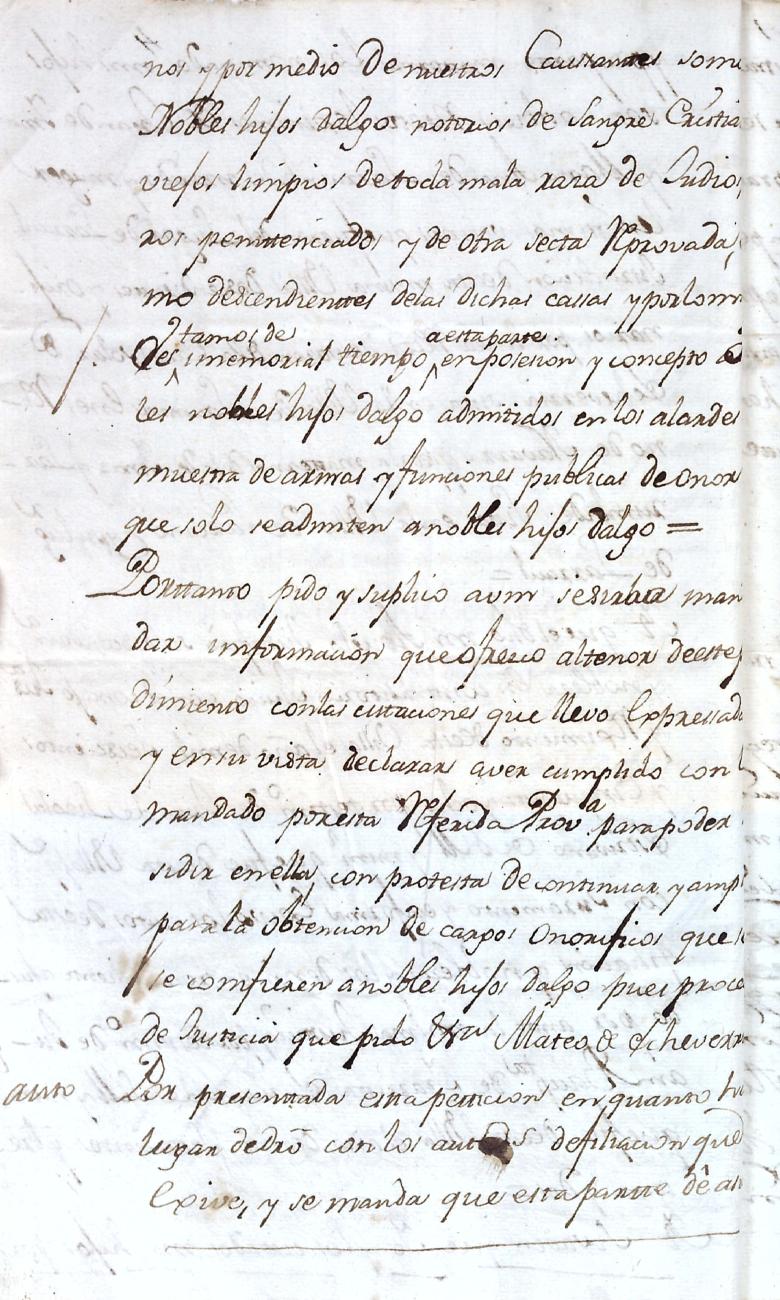 nos y por medio de nuestros Causantes somo
Nobles hijos dalgo notorios de Sangre Cristia
viejos limpios de toda mala raza de Judios
ros penitenciados y de otra secta Rprovada,
mo descendientes de las dichas cassas y por lo
estamos de a esta parte
Des imemorial tiempo, en posesion y concepto de
les nobles hijos dalgo admitidos en los alardes
muestra de armas y funciones publicas de onor
que solo se admiten a nobles hijos dalgo =
Porttanto pido y suplico a vm se sirba man
dar imformacion que ofrezco al tenor de este p
dimiento con las citaciones que llevo Expressad
y en su vista declarar aver cumplido con
mandado por esta Rferida Prov.a para poder
sidir en ella, con protesta de continuar, y ampl
para la obtencion de cargos Onorificos que
se comfieren a nobles hijos dalgo pues proce
de Justicia que pido &ra Mateo de Echeverr
auto Por presenttada esta peticion en quanto h
lugar de dro con los autos de filiacion que
Exive, y se manda que esta partte dê